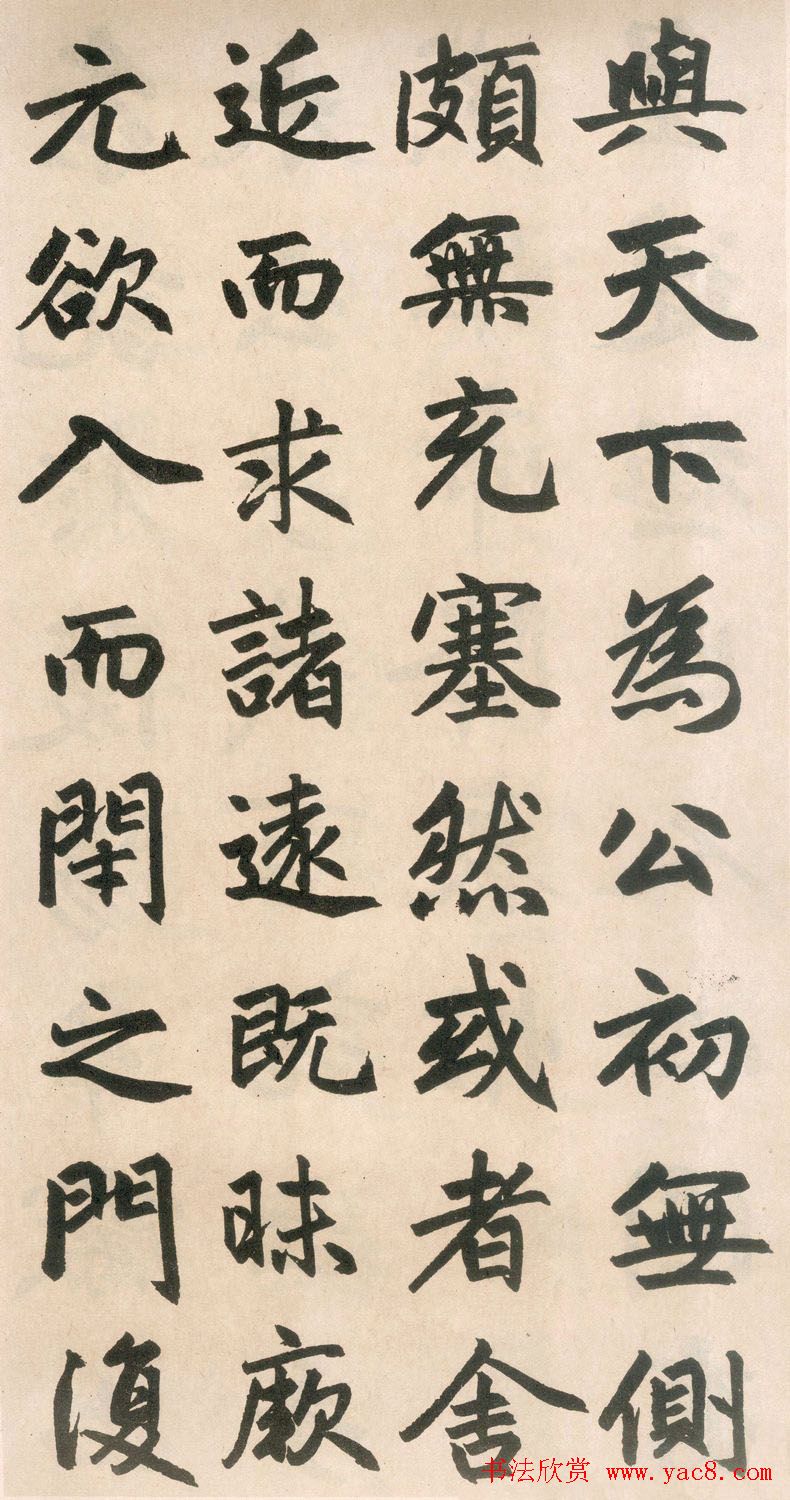 與天下為公初無側
頗無充塞然或者舍
近而求諸遠既昧厥
元欲入而閉之門復
书法欣赏 www.yac8.com